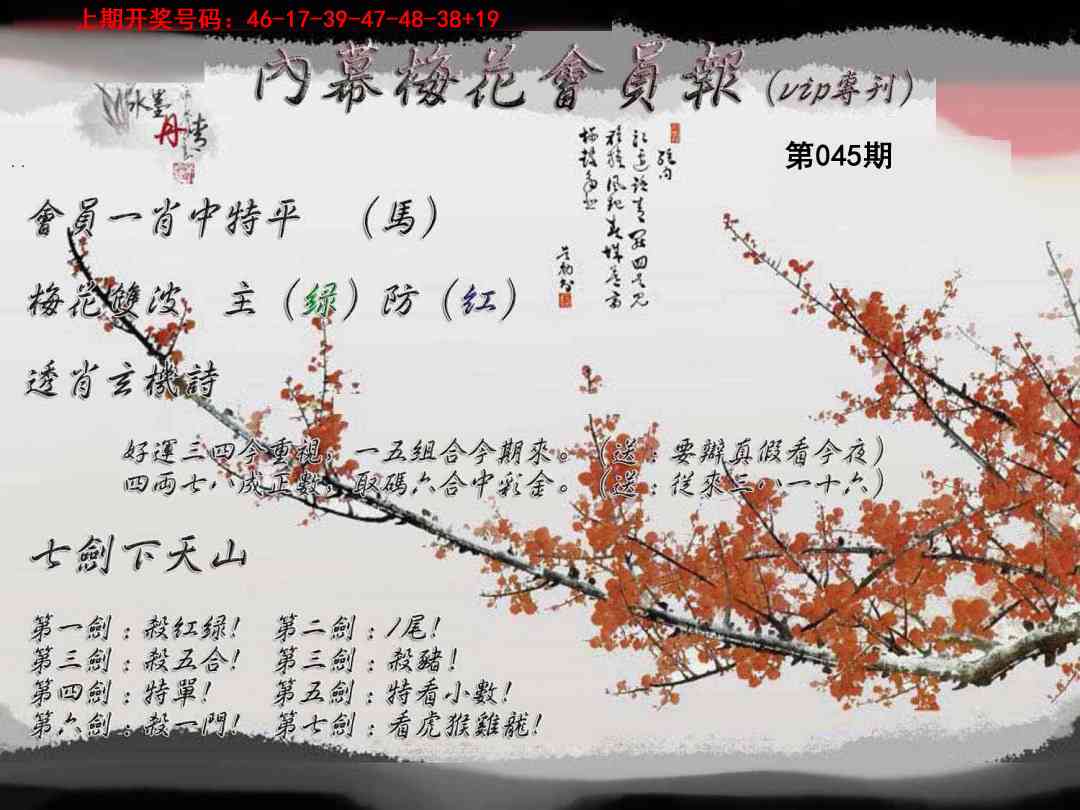 上期开奖号码：46-17-39-47-48-38+19
內幕梅花會員報（vip專刊）
水墨
丹青
第045期
會員一肖中特平 （馬）
梅花雙波 主（绿）防（红）
透肖玄機詩
好運三四今重視，一五組合今期來。（送：要辯真假看今夜）
四両七八成正數，取碼六合中彩金。（送：從來三八一十六）
七劍下天山
第一劍：殺红绿！ 第二劍：1尾！
第三劍：殺五合！ 第三劍：殺豬！
第四劍：特單！ 第五劍：特看小數！
第六劍：殺一門！ 第七劍：看虎猴雞龍！